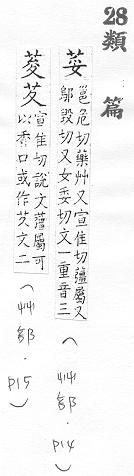 28
類篇
荽 邕危切藥艸又宣隹切薑屬又
鄔毀切又女委切文一重音三
(艸部·P14)
葰芕 宣隹切說文薑屬可
以香口或作芕文二
(艸部·P15)